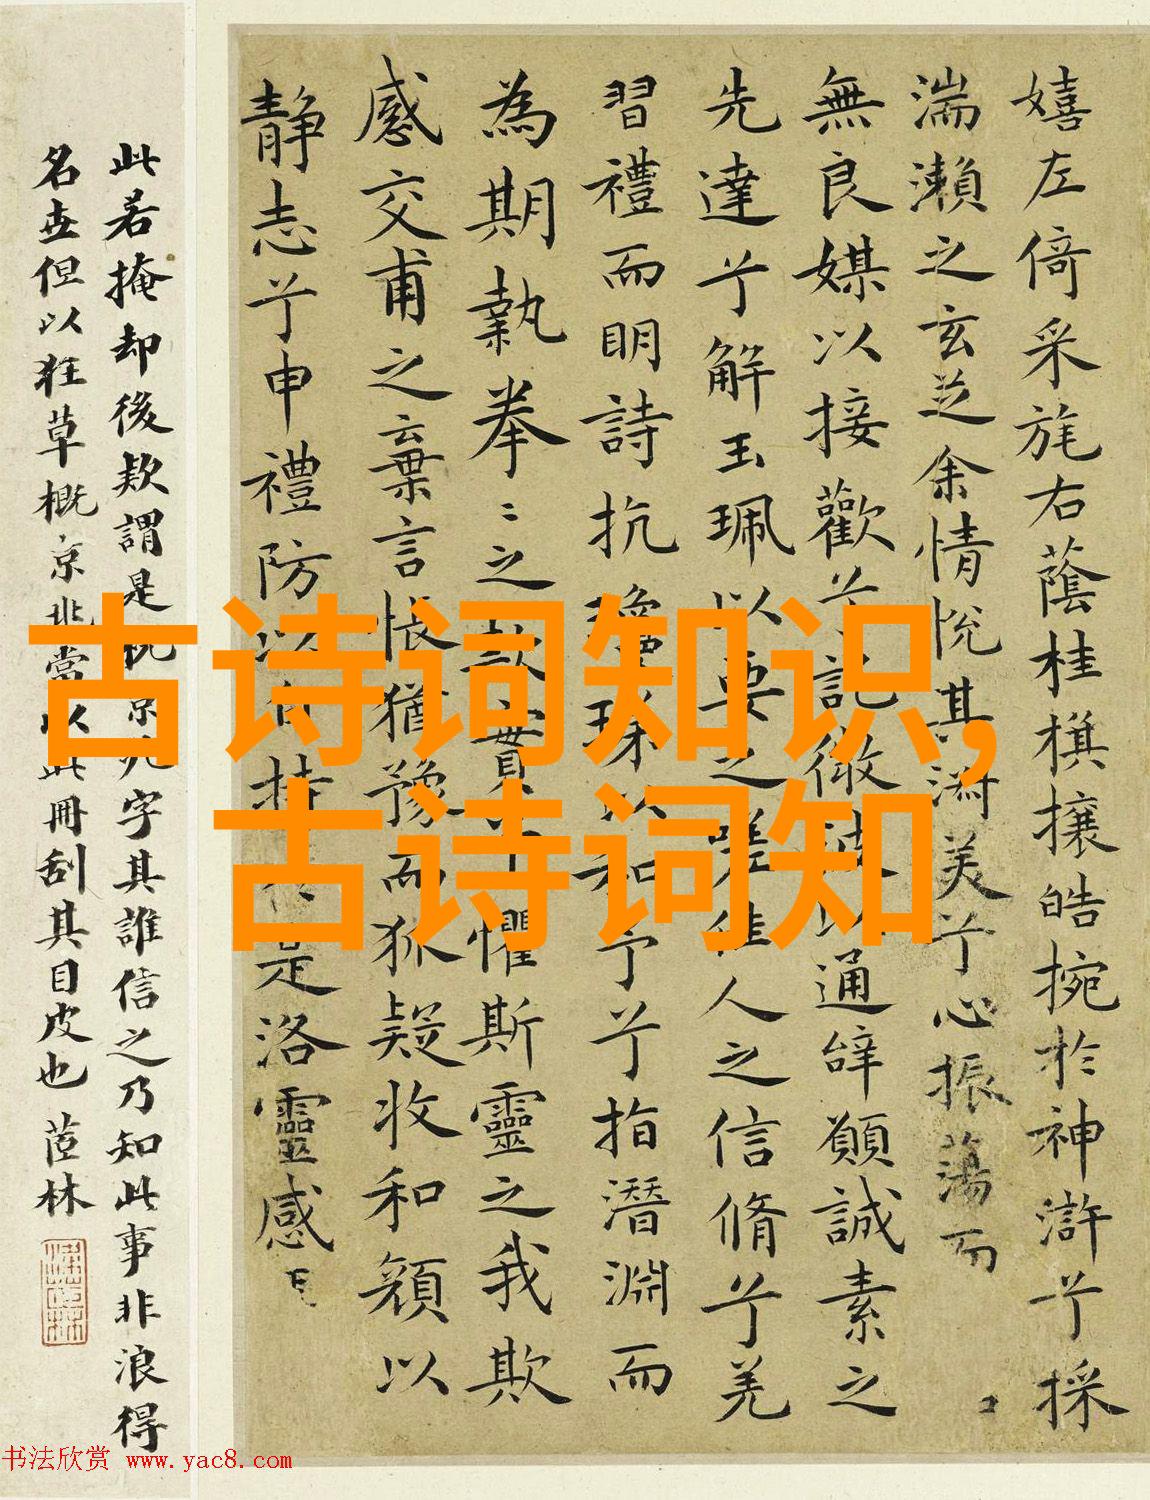 嬉左倚采旄右蔭桂棋攘皓捥於神滸兮採
湍瀨之玄芝余情悅其淑美兮心振蕩而
無良媒以接歡兮託微波以通辭願誠素之
先達兮解玉珮以要之嗟佳人之信脩兮羌
習禮而明詩抗瓊珶以和予兮指潛淵而
為期執拳〻之款實兮懼斯靈之我欺
感交甫之棄言悵猶豫而狐疑收和顏以
静志兮申禮防以自持是洛靈感
此若掩却後款謂是祝京兆字其誰信之乃知此事非浪得
名世但以狂草概京兆當以此冊刮其目皮也 茝林
古诗词知识,
古诗词知
书法欣赏 www.yac8.com